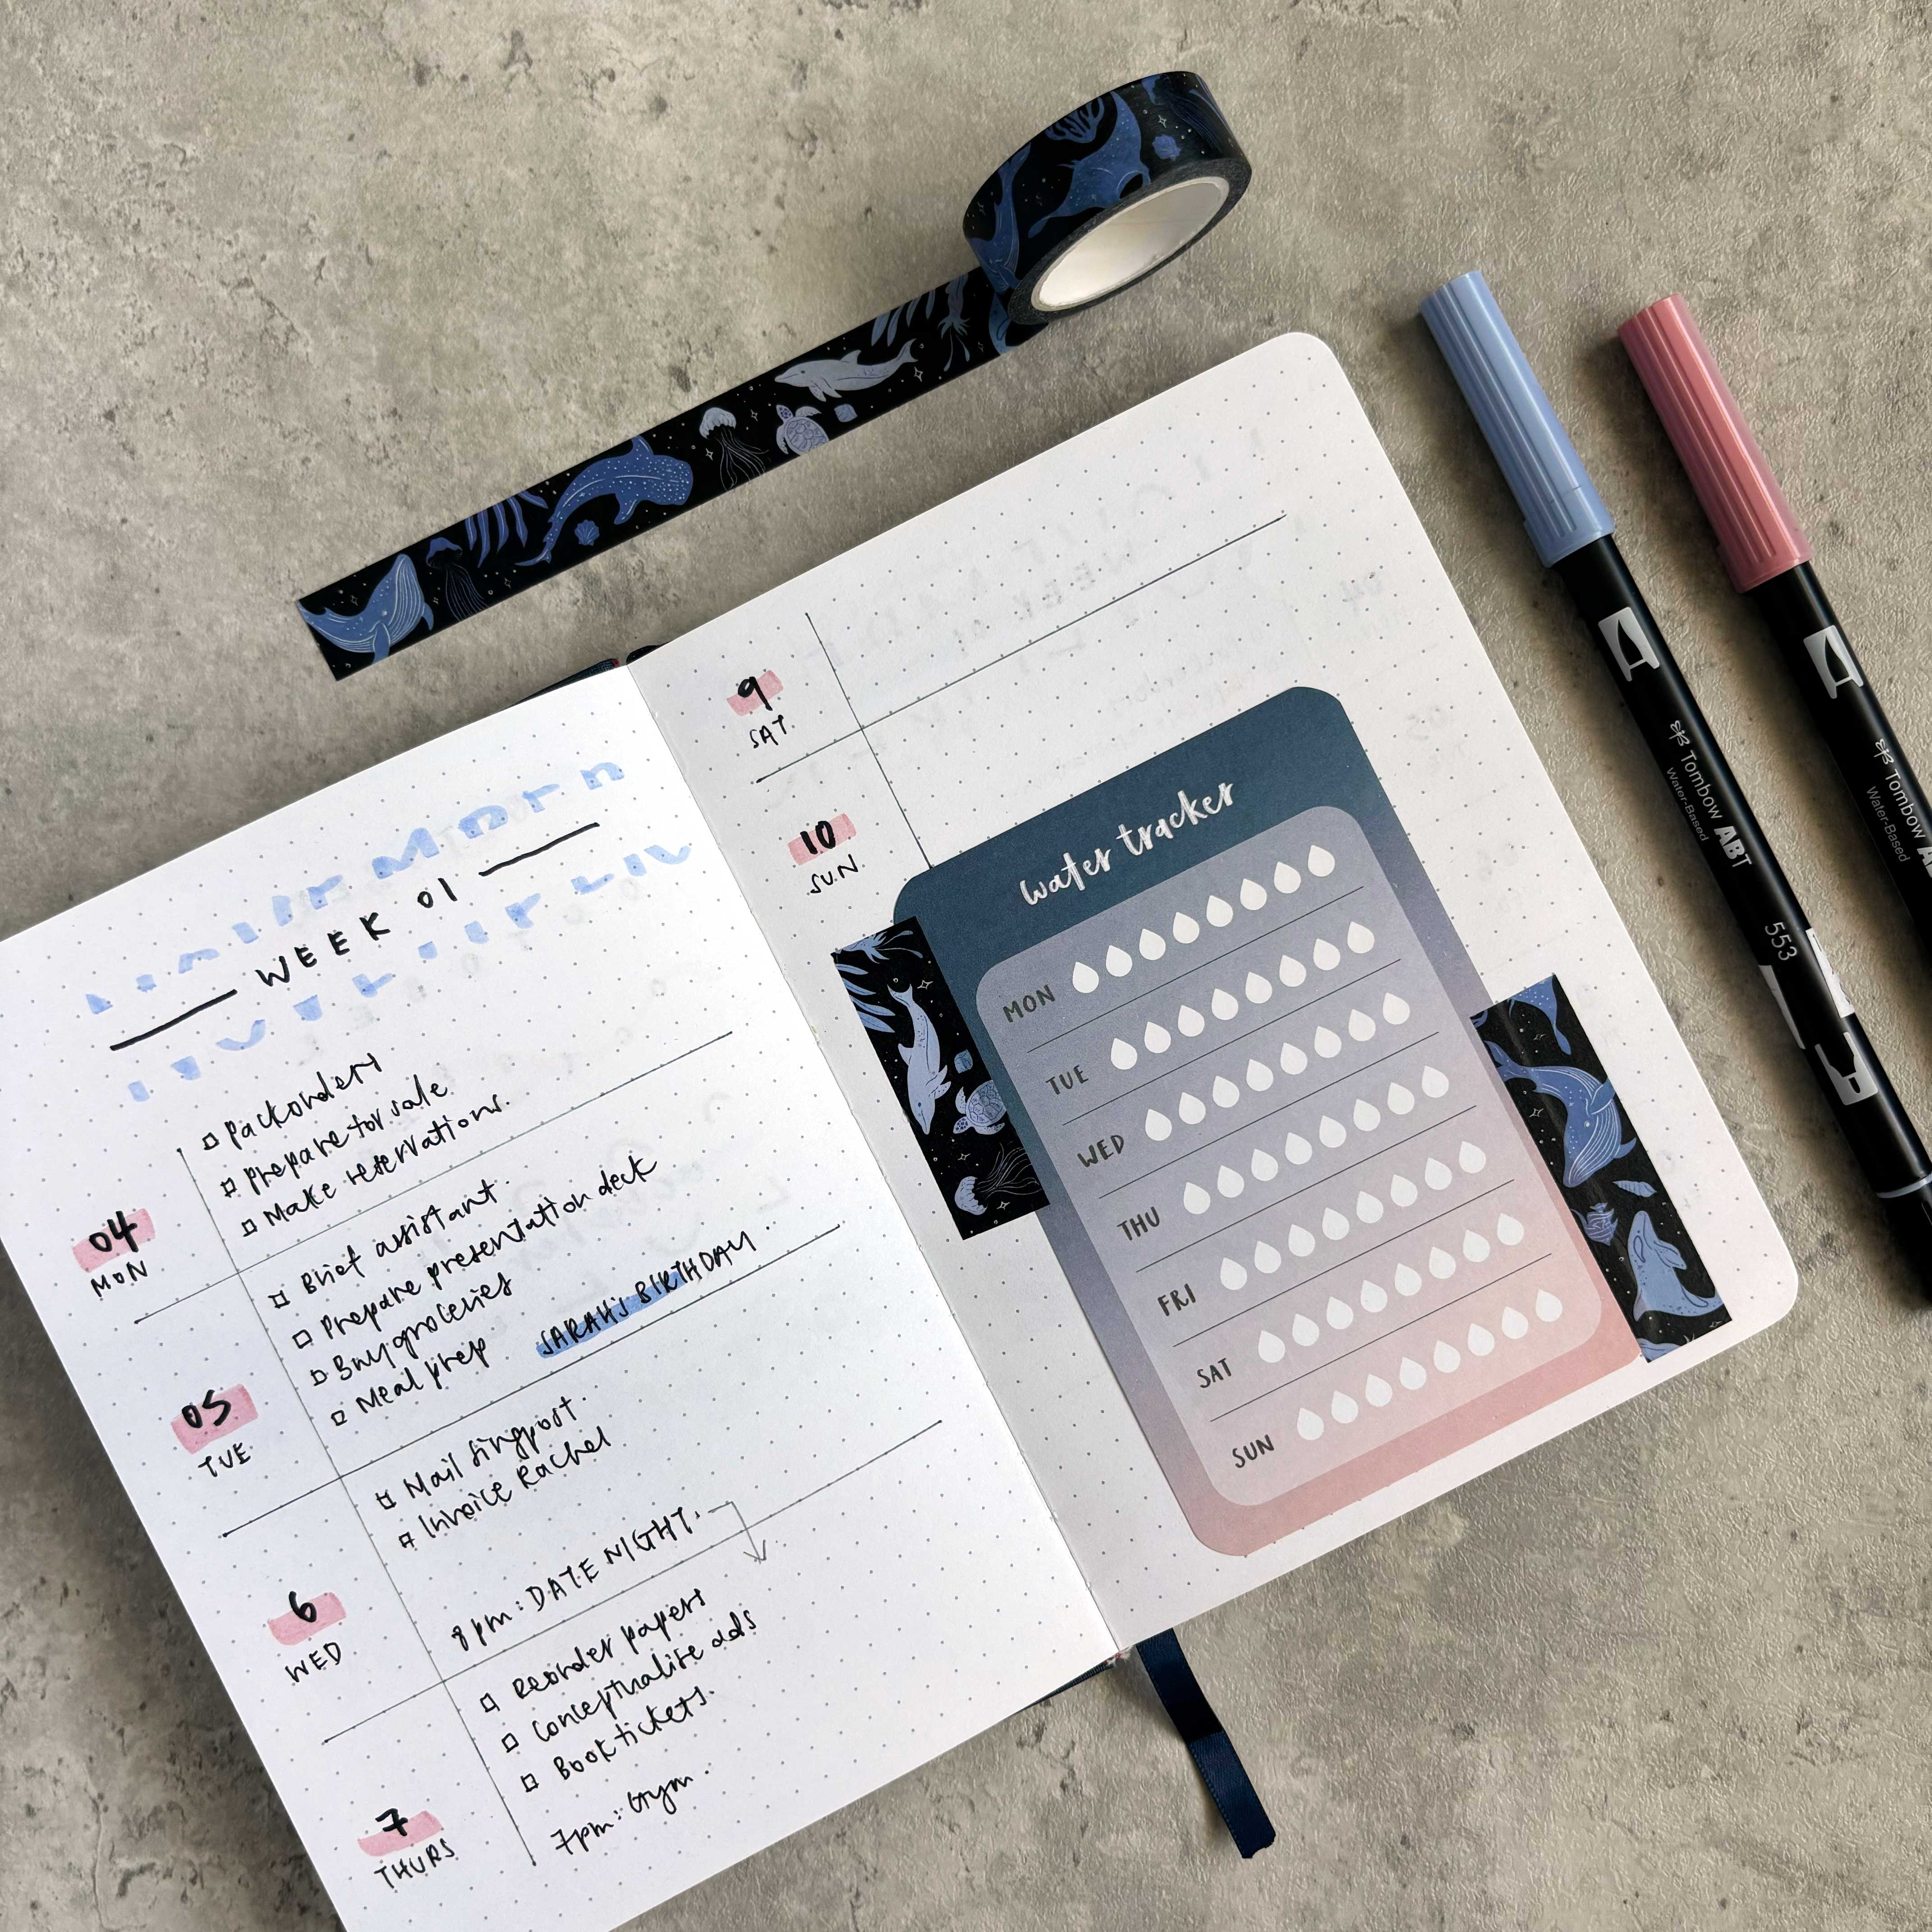 WEEK 01
04
MON
Pack orders
Prepare for sale
Make reservations.
05
TUE
Brief assistant.
Prepare presentation deck
Buy groceries
Meal prep
SARAH's BIRTHDAY.
6
WED
Mail Singpost.
Invoice Rachel
8pm: DATE NIGHT.
7
THURS
Reorder papers
Conceptualise ads
Book tickets.
7pm: Gym.
9
SAT
10
SUN
water tracker
MON
TUE
WED
THU
FRI
SAT
SUN
Tombow ABT
Water-Based
553
Tombow
Water-Based